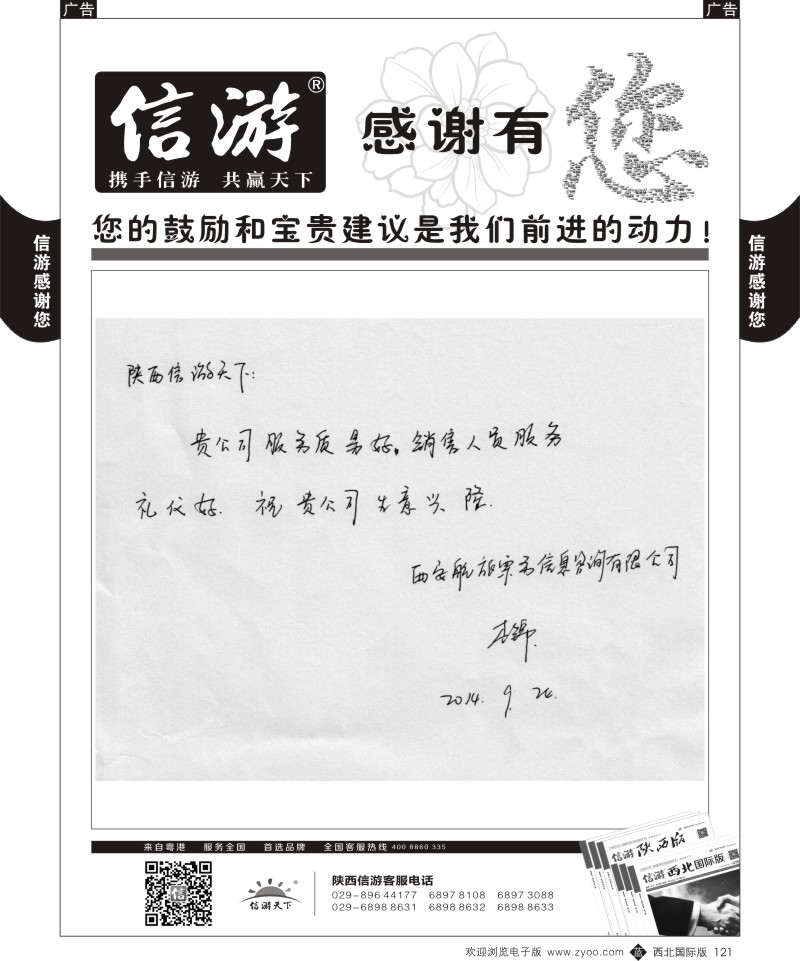 广告
广告
信游®
携手信游 共赢天下
感谢有您
您的鼓励和宝贵建议是我们前进的动力！
信游感谢您
信游感谢您
陕西信游天下：
贵公司服务质量好，销售人员服务
礼仪好．祝贵公司生意兴隆．
西安航旅票务信息咨询有限公司
2014. 9. 26.
来自粤港 服务全国 首选品牌 全国客服热线 400 8860 335
信游
信游天下
陕西信游客服电话
029-896 44177 6897 8108 6897 3088
029-6898 8631 6898 8632 6898 8633
信游 陕西版
信游 西北国际版
欢迎浏览电子版 www.zyoo.com 蓝 西北国际版 121